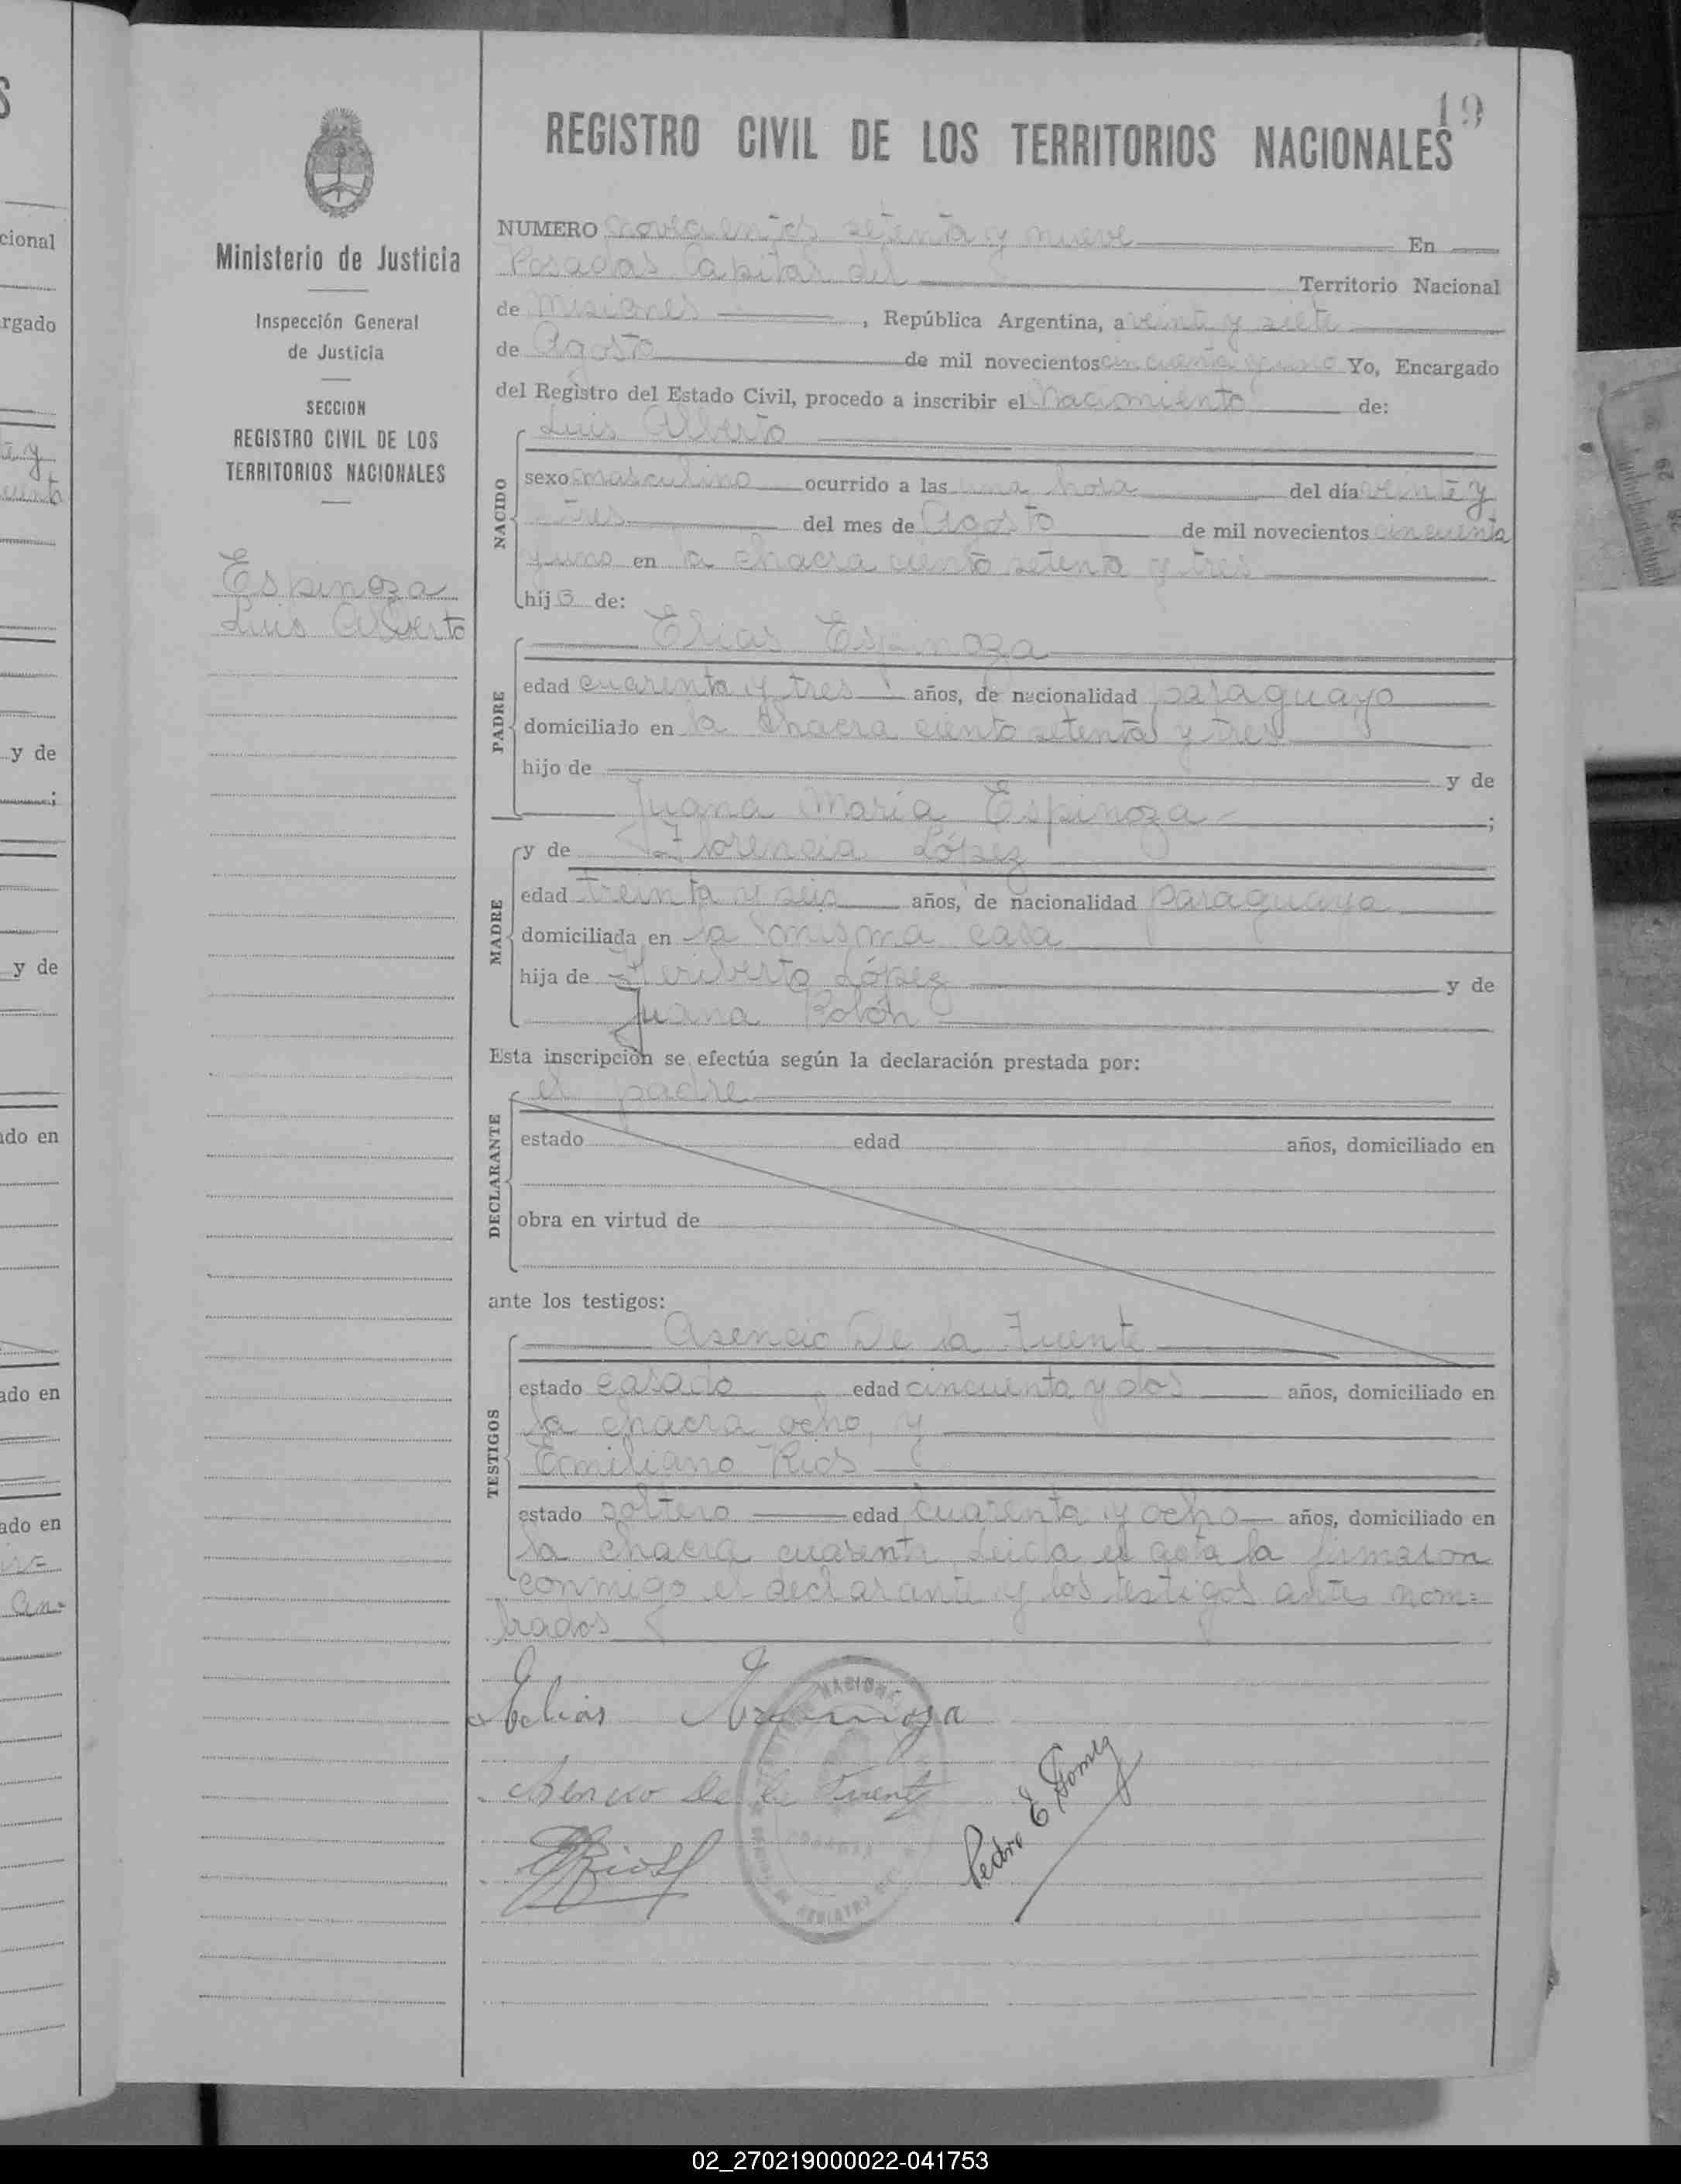 19
REGISTRO CIVIL DE LOS TERRITORIOS NACIONALES
Ministerio de Justicia
Inspección General
de Justicia
SECCION
REGISTRO CIVIL DE LOS
TERRITORIOS NACIONALES
Espinoza
Luis Alberto
NUMERO novecientos setenta y nueve En
Posadas Capital del Territorio Nacional
de Misiones, República Argentina, a veinte y siete
de Agosto de mil novecientos cincuenta y uno Yo, Encargado
del Registro del Estado Civil, procedo a inscribir el Nacimiento de:
NACIDO
Luis Alberto
sexo masculino ocurrido a las una hora del día veinte y
tres del mes de Agosto de mil novecientos cincuenta
y uno en la chacra ciento setenta y tres
hijo de:
PADRE
Elias Espinoza
edad cuarenta y tres años, de nacionalidad paraguayo
domiciliado en la chacra ciento setenta y tres
hijo de y de
Juana Maria Espinoza ;
MADRE
y de Florencia López
edad treinta y seis años, de nacionalidad paraguaya
domiciliada en la misma casa
hija de Heriberto López y de
Juana Bolón
Esta inscripción se efectúa según la declaración prestada por:
DECLARANTE
el padre
estado edad años, domiciliado en
obra en virtud de
ante los testigos:
TESTIGOS
Asencio De la Fuente
estado casado edad cincuenta y dos años, domiciliado en
la chacra ocho, y
Emiliano Rios
estado soltero edad cuarenta y ocho años, domiciliado en
la chacra cuarenta. Leida el acta la firmaron
conmigo el declarante y los testigos antes nom=
brados
Elias Espinoza
Asencio De la Fuente
ERios
Pedro E Gomez
02_270219000022-041753